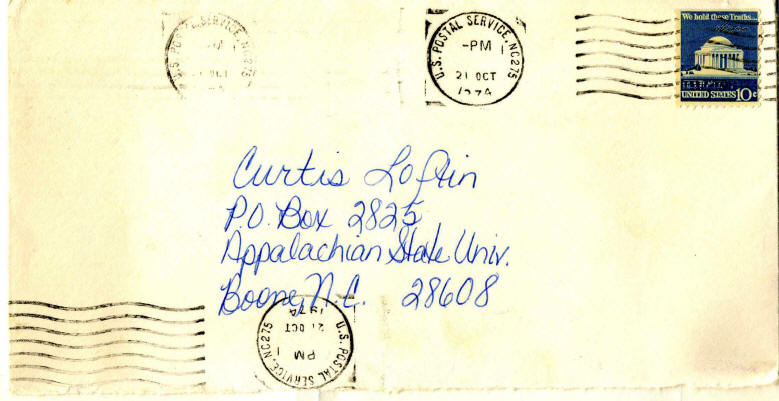 U.S. POSTAL SERVICE, NC 275
PM
21 OCT
U.S. POSTAL SERVICE, NC 275
-PM
21 OCT
1974
We hold these Truths...
UNITED STATES 10c
Curtis Loftin
P.O. Box 2825
Appalachian State Univ.
Boone, N.C. 28608
U.S. POSTAL SERVICE, NC 275
PM
21 OCT
1974